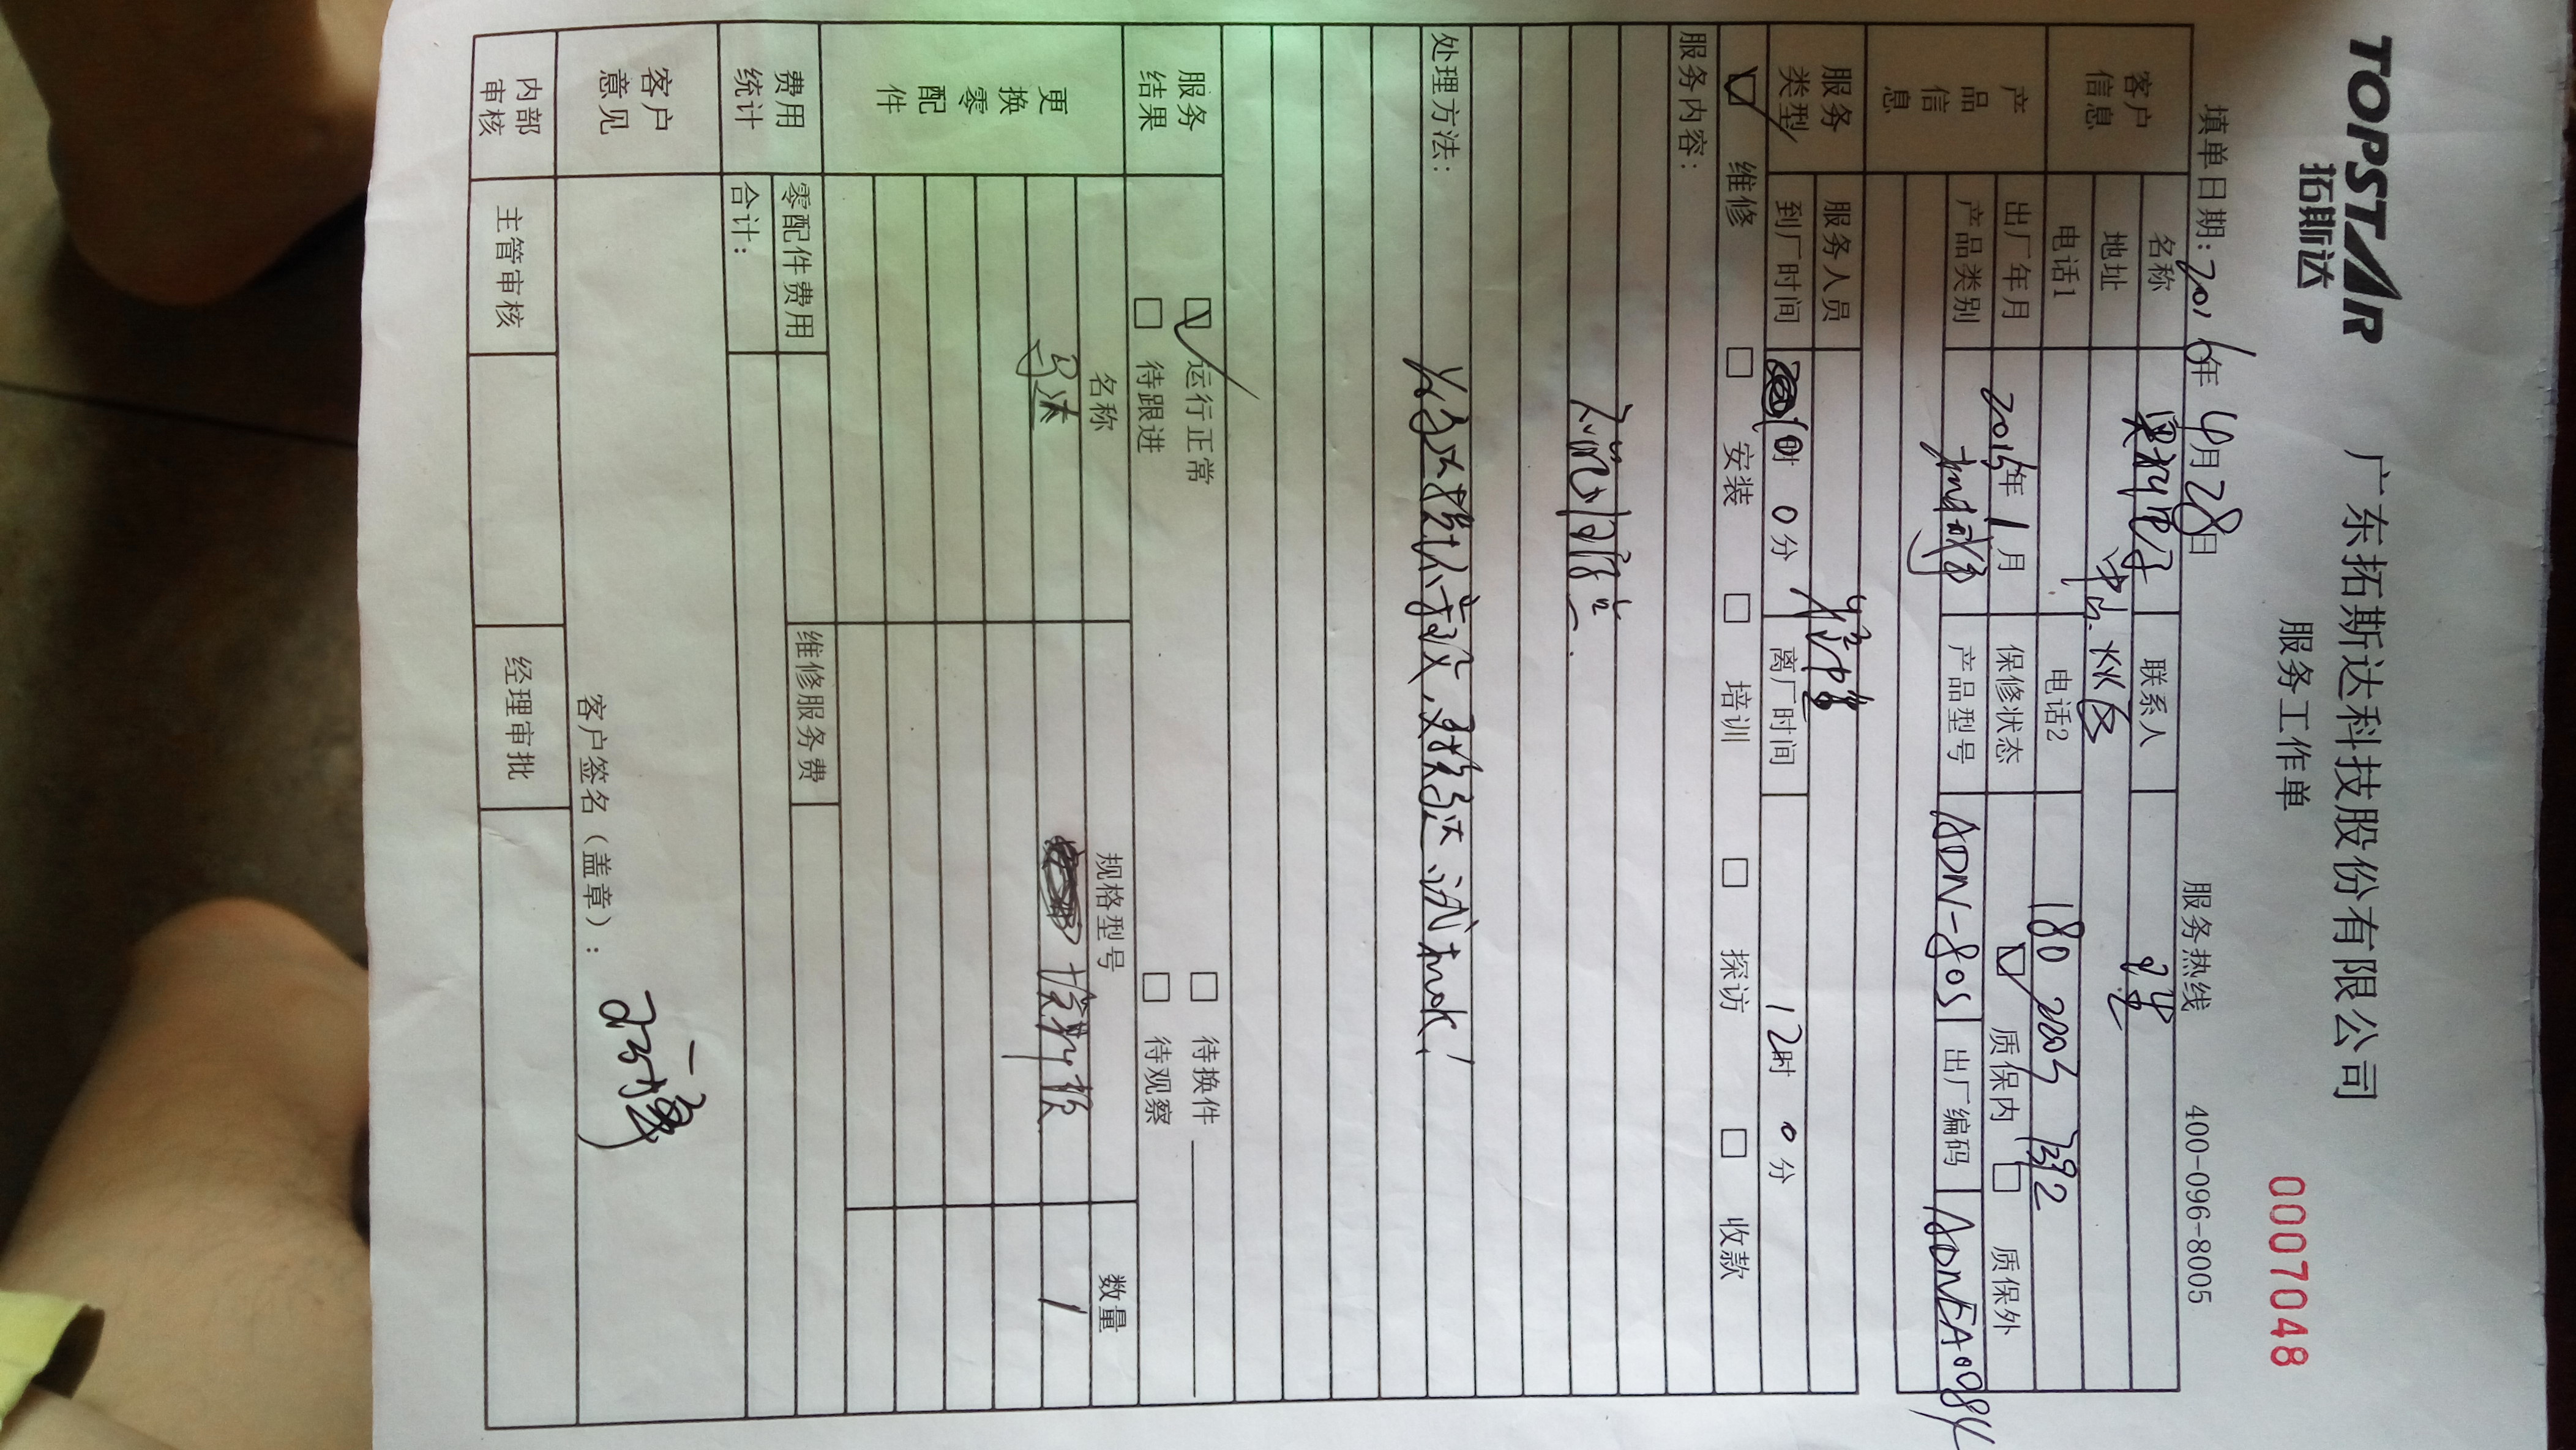 TOPSTAR
拓斯达
广东拓斯达科技股份有限公司
服务工作单
0007048
填单日期:2016年4月28日
服务热线 400-096-8005
客户信息
名称
联系人
地址 中山
电话1
电话2 180 2003 7392
产品信息
出厂年月 2015年1月
保修状态 ☑ 质保内 □ 质保外
产品类别 机械手
产品型号 ADN-80S
出厂编码
服务类型
服务人员
到厂时间 时 0分
离厂时间 12时 0分
☑ 维修 □ 安装 □ 培训 □ 探访 □ 收款
服务内容:
处理方法:
服务结果
☑ 运行正常 □ 待换件
□ 待跟进 □ 待观察
更换零配件
名称 规格型号 数量
马达 1
费用统计
零配件费用
维修服务费
合计:
客户意见
客户签名(盖章):
内部审核
主管审核
经理审批